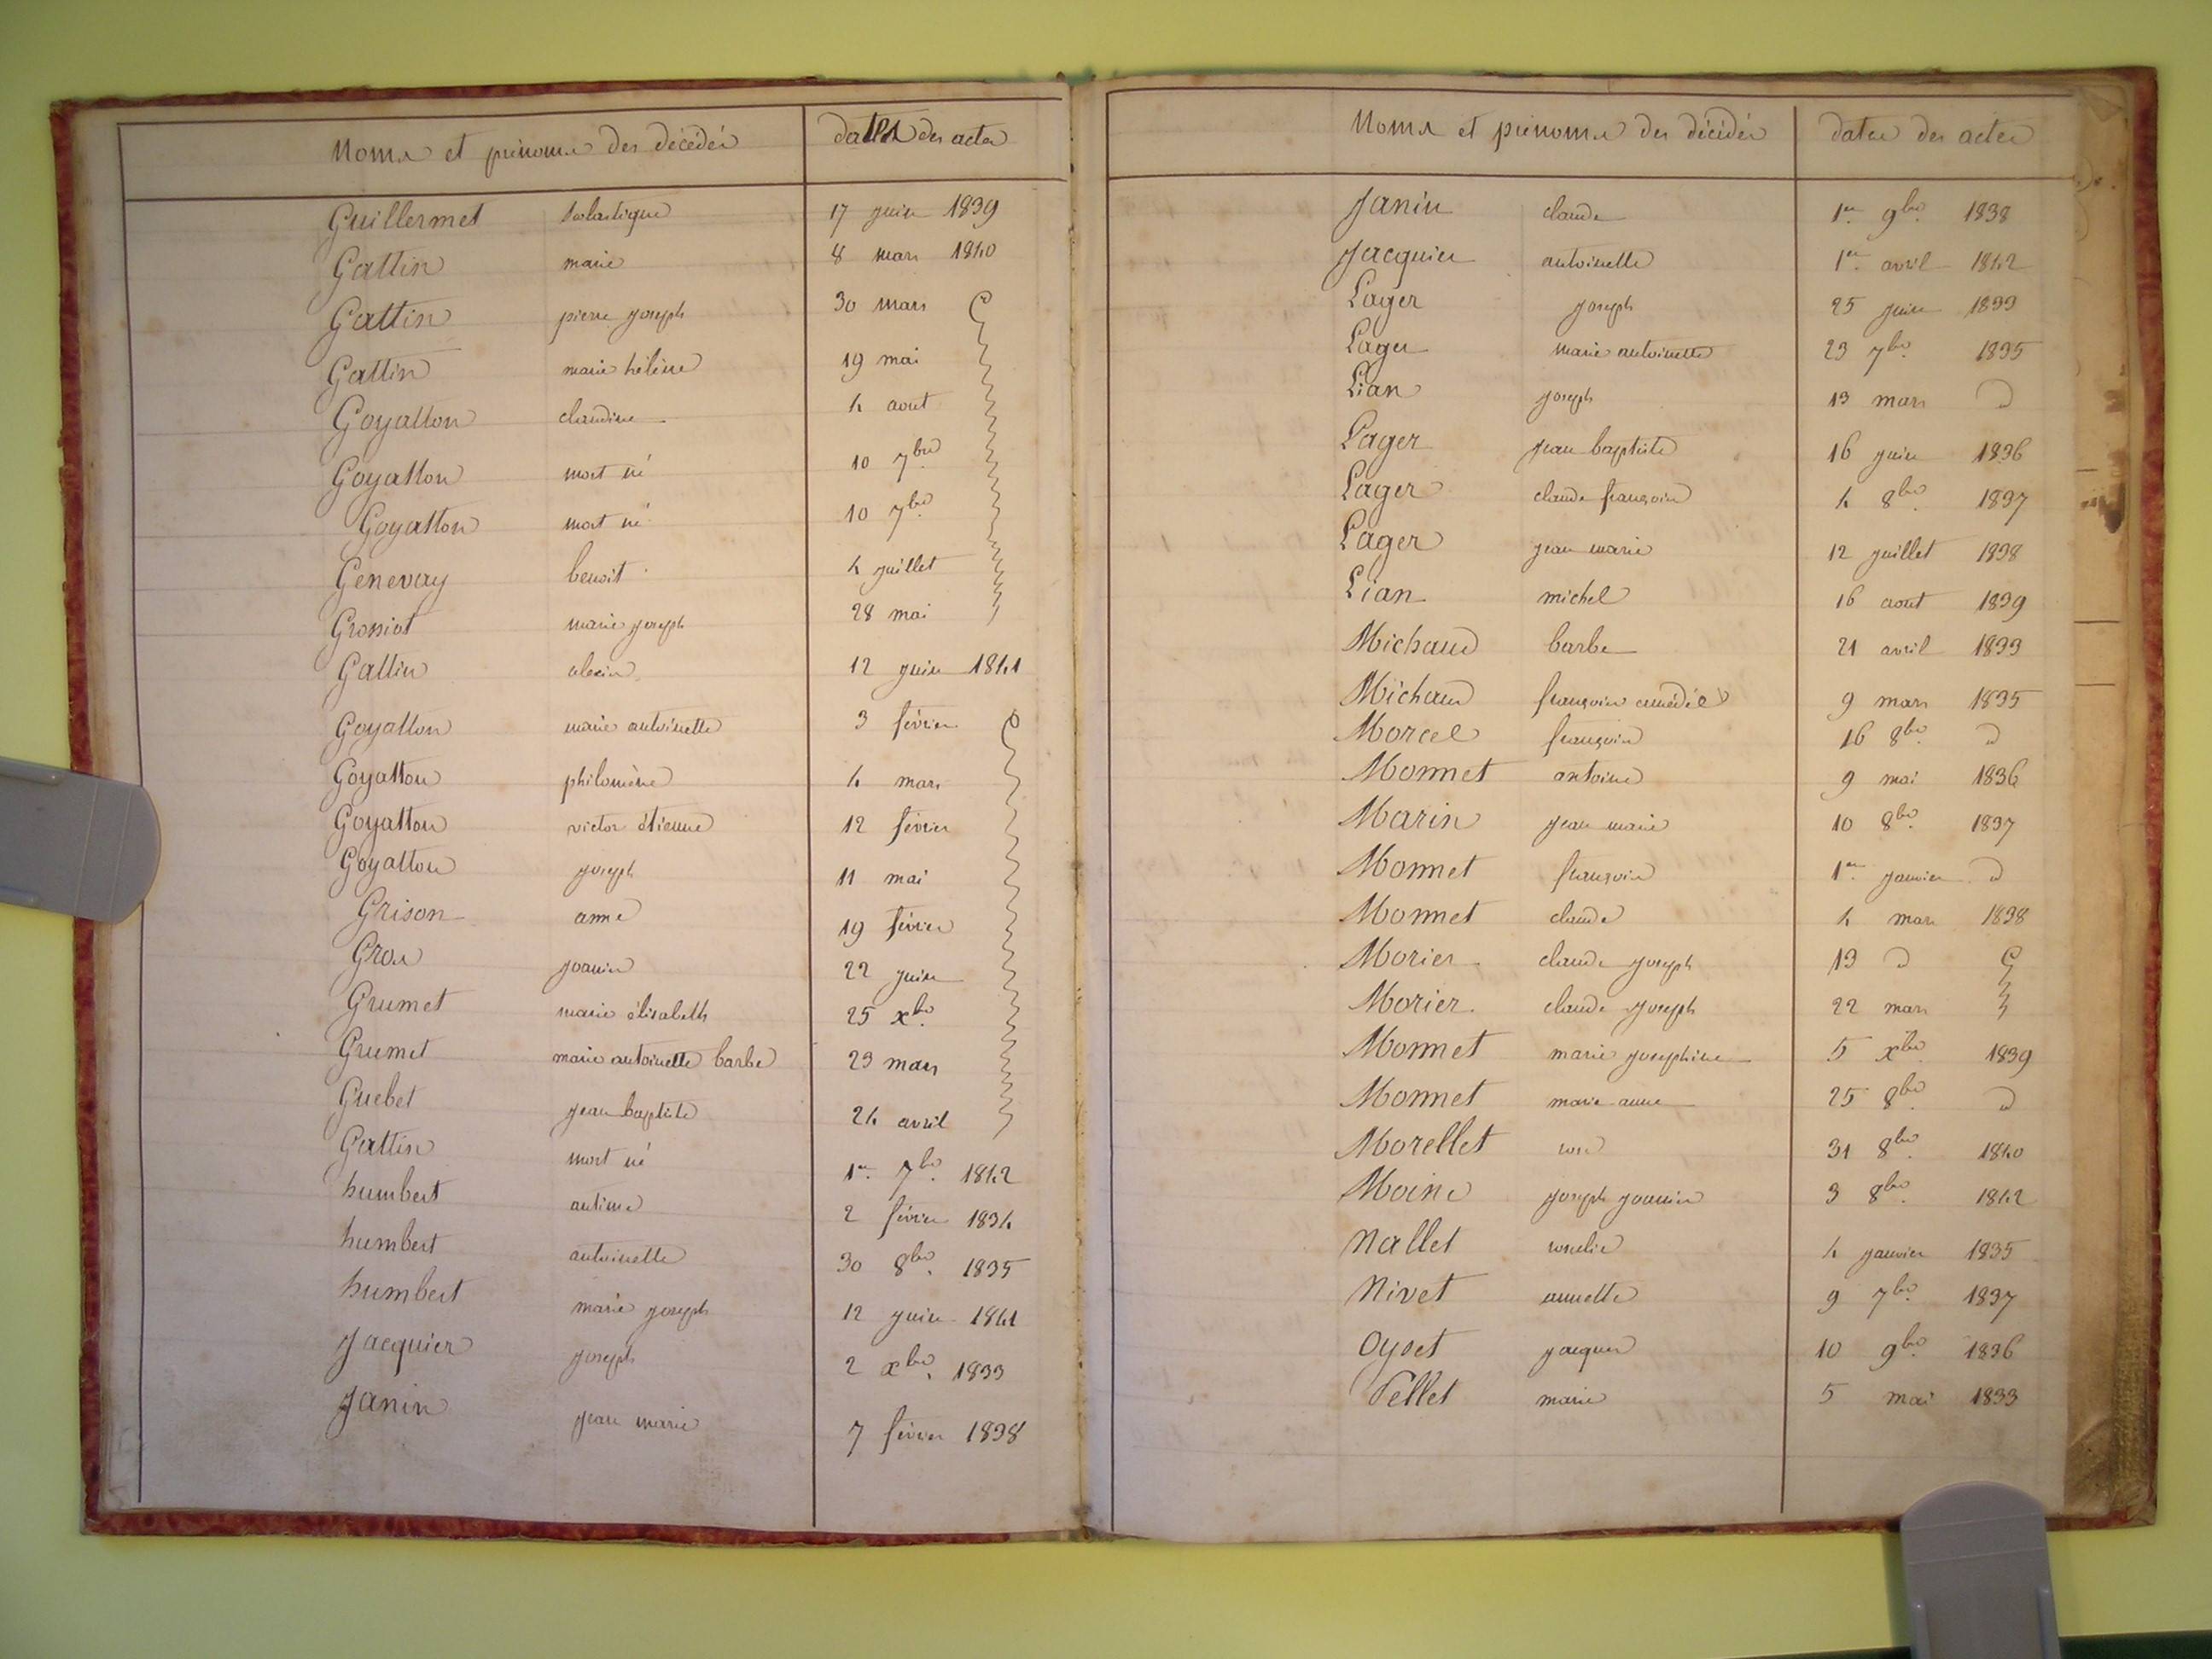 Noms et prénoms des décédés dates des actes
Guillermet scolastique 17 juin 1839
Gattin marie 8 mars 1840
Gattin pierre joseph 30 mars
Gattin marie hélène 19 mai
Goyatton claudine 4 aout
Goyatton mort né 10 7bre
Goyatton mort né 10 7bre
Genevay benoit 4 juillet
Grossiot marie joseph 28 mai
Gattin alexis 12 juin 1841
Goyatton marie antoinette 3 février
Goyatton philomène 4 mars
Goyatton victor étienne 12 février
Goyatton joseph 11 mai
Grison anne 19 février
Gros joanin 22 juin
Grumet marie élisabeth 25 xbre
Grumet marie antoinette barbe 23 mars
Guebet jean baptiste 24 avril
Gattin mort né 1er 7bre 1842
humbert antime 2 février 1834
humbert antoinette 30 8bre 1835
humbert marie joseph 12 juin 1841
Jacquier joseph 2 xbre 1833
Janin jean marie 7 février 1838
Noms et prénoms des décédés dates des actes
Janin claude 1er 9bre 1838
Jacquier antoinette 1er avril 1842
Lager joseph 25 juin 1833
Lager marie antoinette 23 7bre 1835
Lian joseph 13 mars d
Lager jean baptiste 16 juin 1836
Lager claude françois 4 8bre 1837
Lager jean marie 12 juillet 1838
Lian michel 16 aout 1839
Michaud barbe 21 avril 1833
Michaud françois amédée 9 mars 1835
Morcel françois 16 8bre d
Monnet antoine 9 mai 1836
Marin jean marie 10 8bre 1837
Monnet françois 1er janvier d
Monnet claude 4 mars 1838
Morier claude joseph 13 d
Morier claude joseph 22 mars
Monnet marie josephine 5 xbre 1839
Monnet marie anne 25 8bre d
Morellet rose 31 8bre 1840
Moine joseph joanin 3 8bre 1842
Nallet rosalie 4 janvier 1835
Nivet annette 9 7bre 1837
Oyset jacques 10 9bre 1836
Pellet marie 5 mai 1833